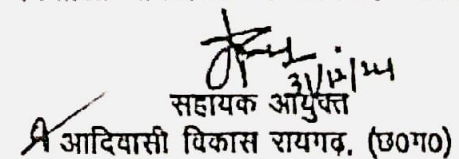 31/12/24
सहायक आयुक्त
आदिवासी विकास रायगढ़. (छ0ग0)